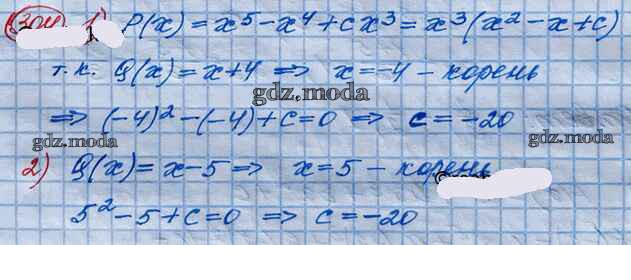 304. 1) P(x) = x⁵ - x⁴ + cx³ = x³(x² - x + c)
т.к. Q(x) = x + 4 ⇒ x = -4 - корень
gdz.moda
⇒ (-4)² - (-4) + c = 0 ⇒ c = -20
gdz.moda gdz.moda
2) Q(x) = x - 5 ⇒ x = 5 - корень
5² - 5 + c = 0 ⇒ c = -20